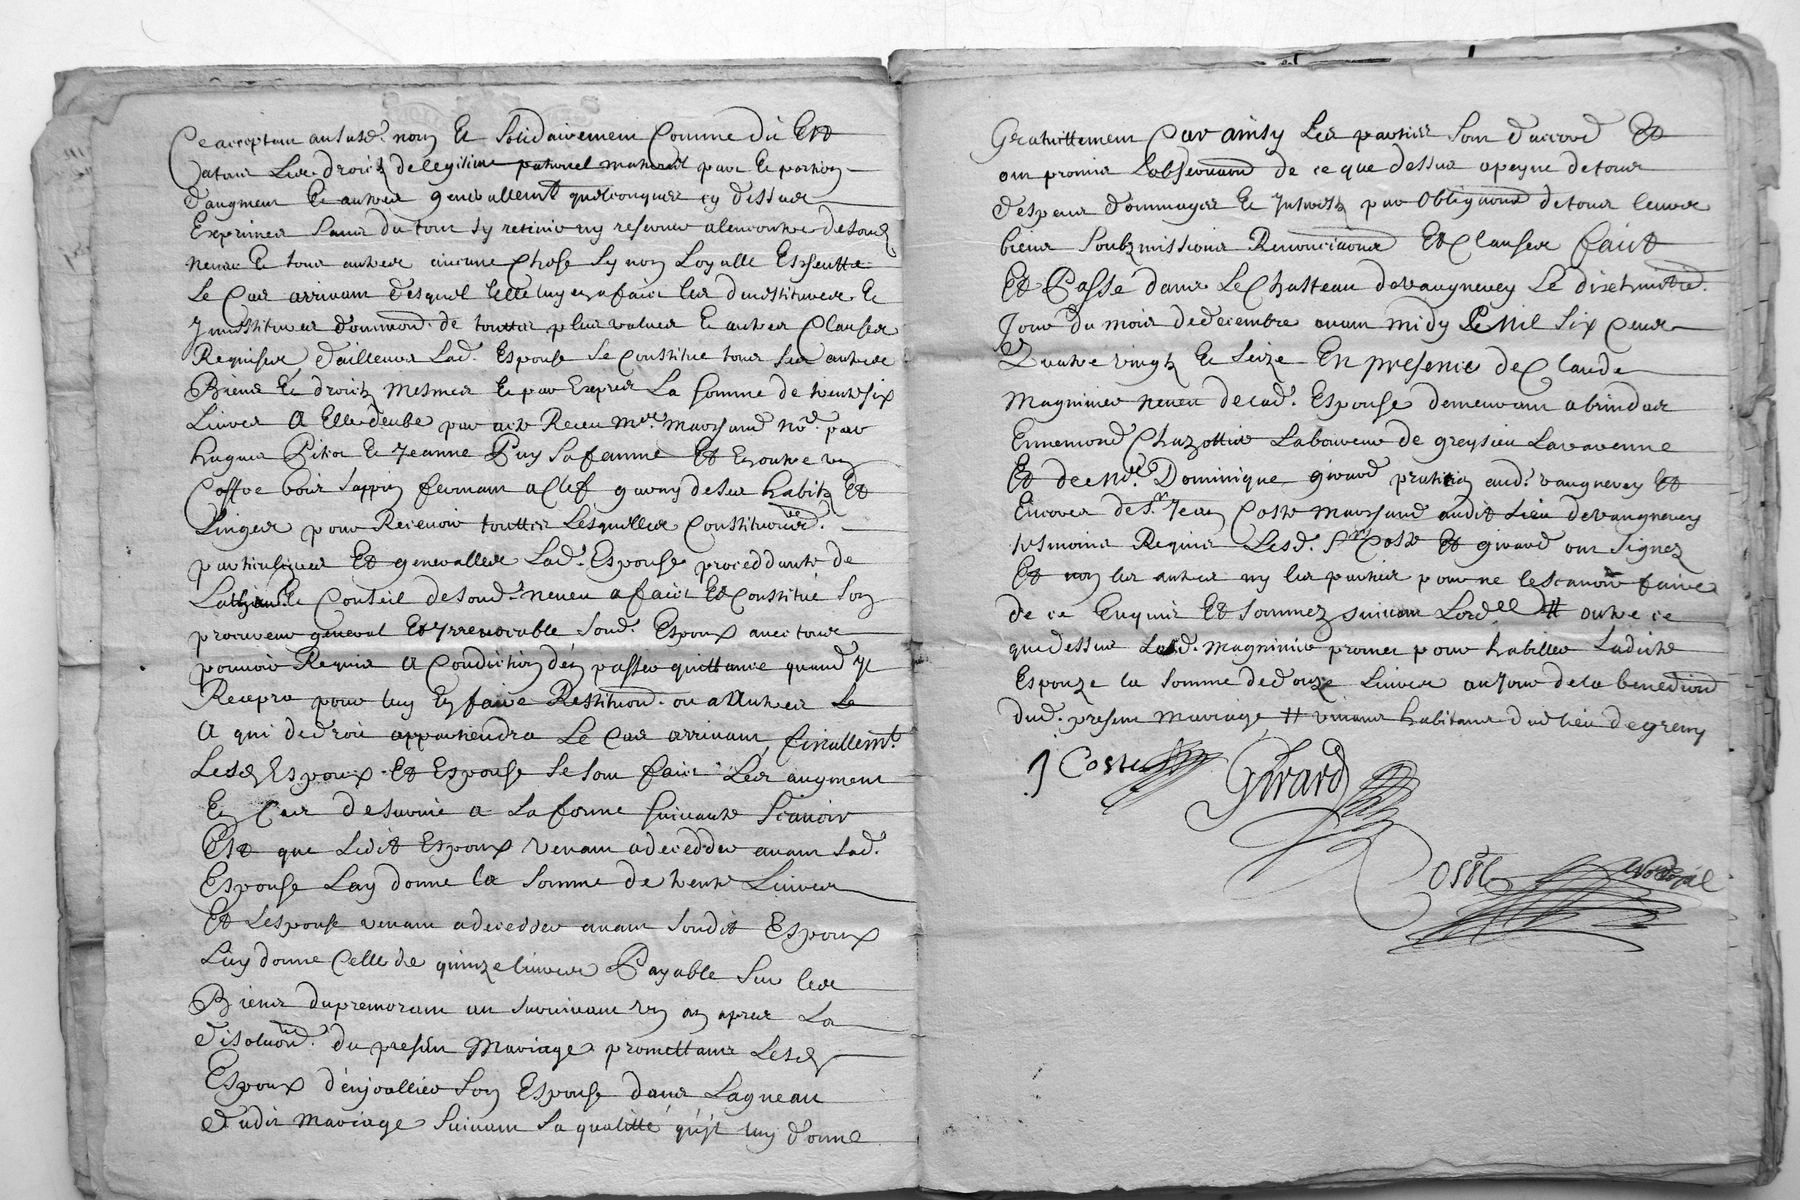 Ce acceptans aususd. nom & solidairement comme dit Est
Let tous Les droitz de legitime paternel maternel part & portion
d'augment & autres generallemt quelconques cy dessus
Exprimes sans du tout sy retenir ny reserver alencontre de sond.
neveu & tous autres aucune chose sy non Loyalle Escheutte
Le Cas arrivant desquel elle luy en a fait les devestitures &
Jnvestitures dommond. de touttes plus values & autres Clauses
Requises d'ailleurs Lad. Espouse se constitue tous ses autres
Biens & droitz mesmes & par Expres La somme de trente six
Livres A Elle deube par acte Receu Me. marchand no.re par
hugues Pitiot & Jeanne Puy sa femme Et En outre un
Coffre bois sappin fermant a Clef garny de ses habitz Et
Linges pour Recevoir touttes Lesquelles constitutions
particulieres Et generalles Lad. Espouse proceddante de
L'advis & Conseil de sond. neveu a fait Et Constitué son
procureur general Et Jrrevocable sond. Espoux avec tout
pouvoir Requis A Condition den passer quittance quand Jl
Recepvra pour luy En faire Restituon. ou a Autres
A qui de droit appartiendra Le Cas arrivant, finallemt.
Lesd. Espoux Et Espouse se sont faits Les augment
En Cas de survie a La forme suivante scavoir
Est que Ledit Espoux venant a decedder avant Sad.
Espouse Luy donne la somme de trente Livres
Et Lespouse venant a decedder avant sondit Espoux
Luy donne Celle de quinze livres Payable sur les
Biens du premourant au survivant un an apres La
disoluon. du present mariage promettant Lesd.
Espoux d'enjoallier son Espouse dans Lagneau
dudit mariage suivant sa qualitté qu'jl luy donne
Gratuittement Car ainsy Les parties sont d'accord Et
ont promis L'observaon de ce que dessus a peyne de tous
despens dommages & Jnterestz par Obligaons de tous leurs
biens soubzmissions Renonciaons Et Clauses fait
Et Passé dans Le Chasteau de vaugneray Le dixhuitie.
Jour du mois de decembre avant midy Mil six Cens
Quatre vingtz & seize En presence de Claude
Magninier neveu de Lad. Espouse demeurant a brindas
Ennemond Chazottier Laboureur de greysieu Lavarenne
Et de Me. Dominique girard praticien aud. vaugneray Et
Encores de Sr. Jean Coste marchand audit Lieu de vaugneray
tesmoins Requis Lesd. Sr. Coste Et girard ont signez
Et non les autres ny les parties pour ne le scavoir faire
de ce Enquis Et sommez suivant Lord.ce # outre ce
que dessus Led. Magninier promet pour habiller Ladicte
Espouze la somme de douze Livres au Jour de la benediction
dud. present mariage # vivant habitant dud. lieu de grezieu
J Coste
Girard
Coste No.re Royal